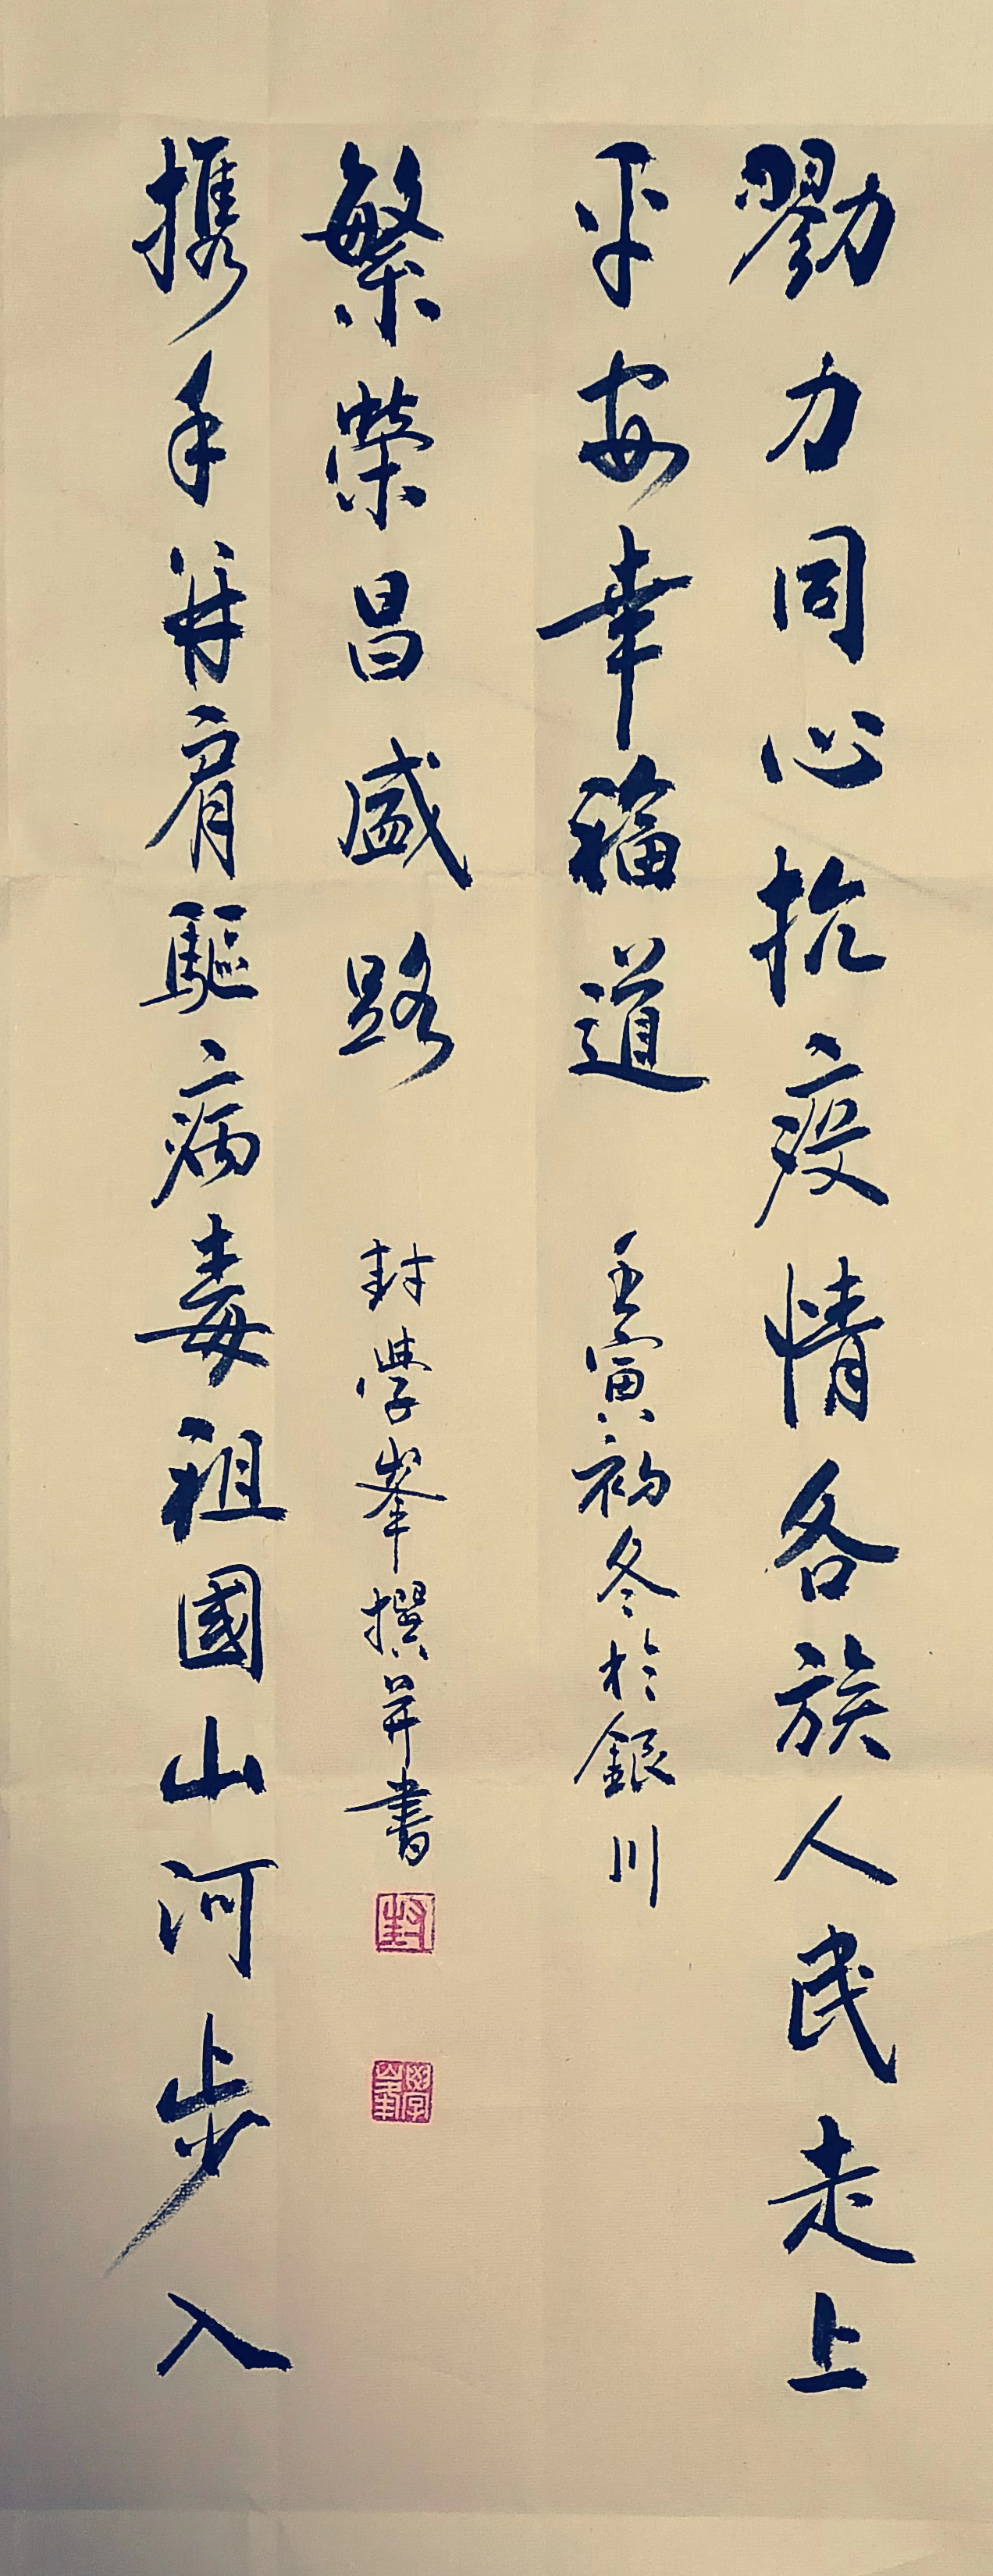 勠力同心抗疫情各族人民走上
平安幸福道
壬寅初冬於銀川
携手并肩驅病毒祖國山河步入
繁榮昌盛路
封學峯撰并書
封
學峯